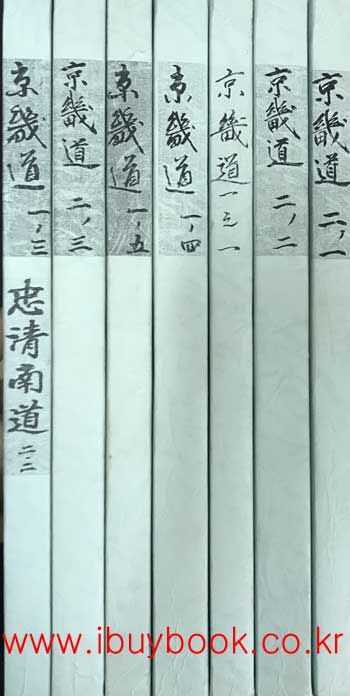 京畿道 一,三
忠清南道 二.二
京畿道 二,三
京畿道 一,五
京畿道 一,四
京畿道 一之一
京畿道 二,二
京畿道 二,一
www.ibuybook.co.kr